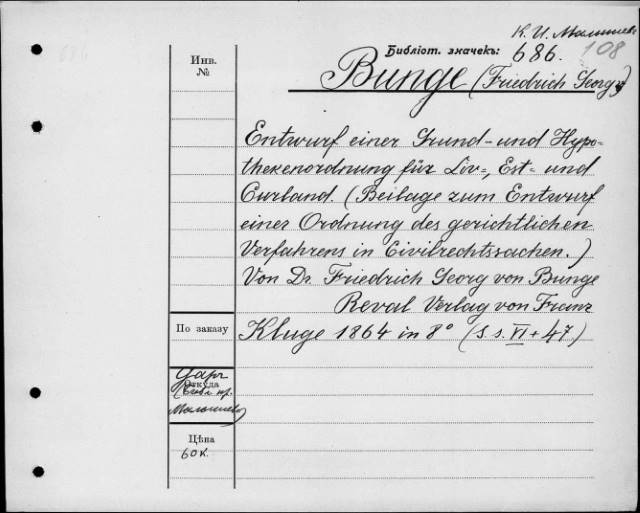 К. И. Малышев
Библіот. значекъ: 686. 108
Bunge (Friedrich Georg)
Инв.
№
Entwurf einer Grund- und Hypo-
thekenordnung für Liv-, Est- und
Curland. (Beilage zum Entwurf
einer Ordnung des gerichtlichen
Verfahrens in Civilrechtssachen.)
Von Dr. Friedrich Georg von Bunge
Reval Verlag von Franz
Kluge 1864 in 8° (S.s. VI + 47)
По заказу
Откуда
Малышева)
Цѣна
60 к.